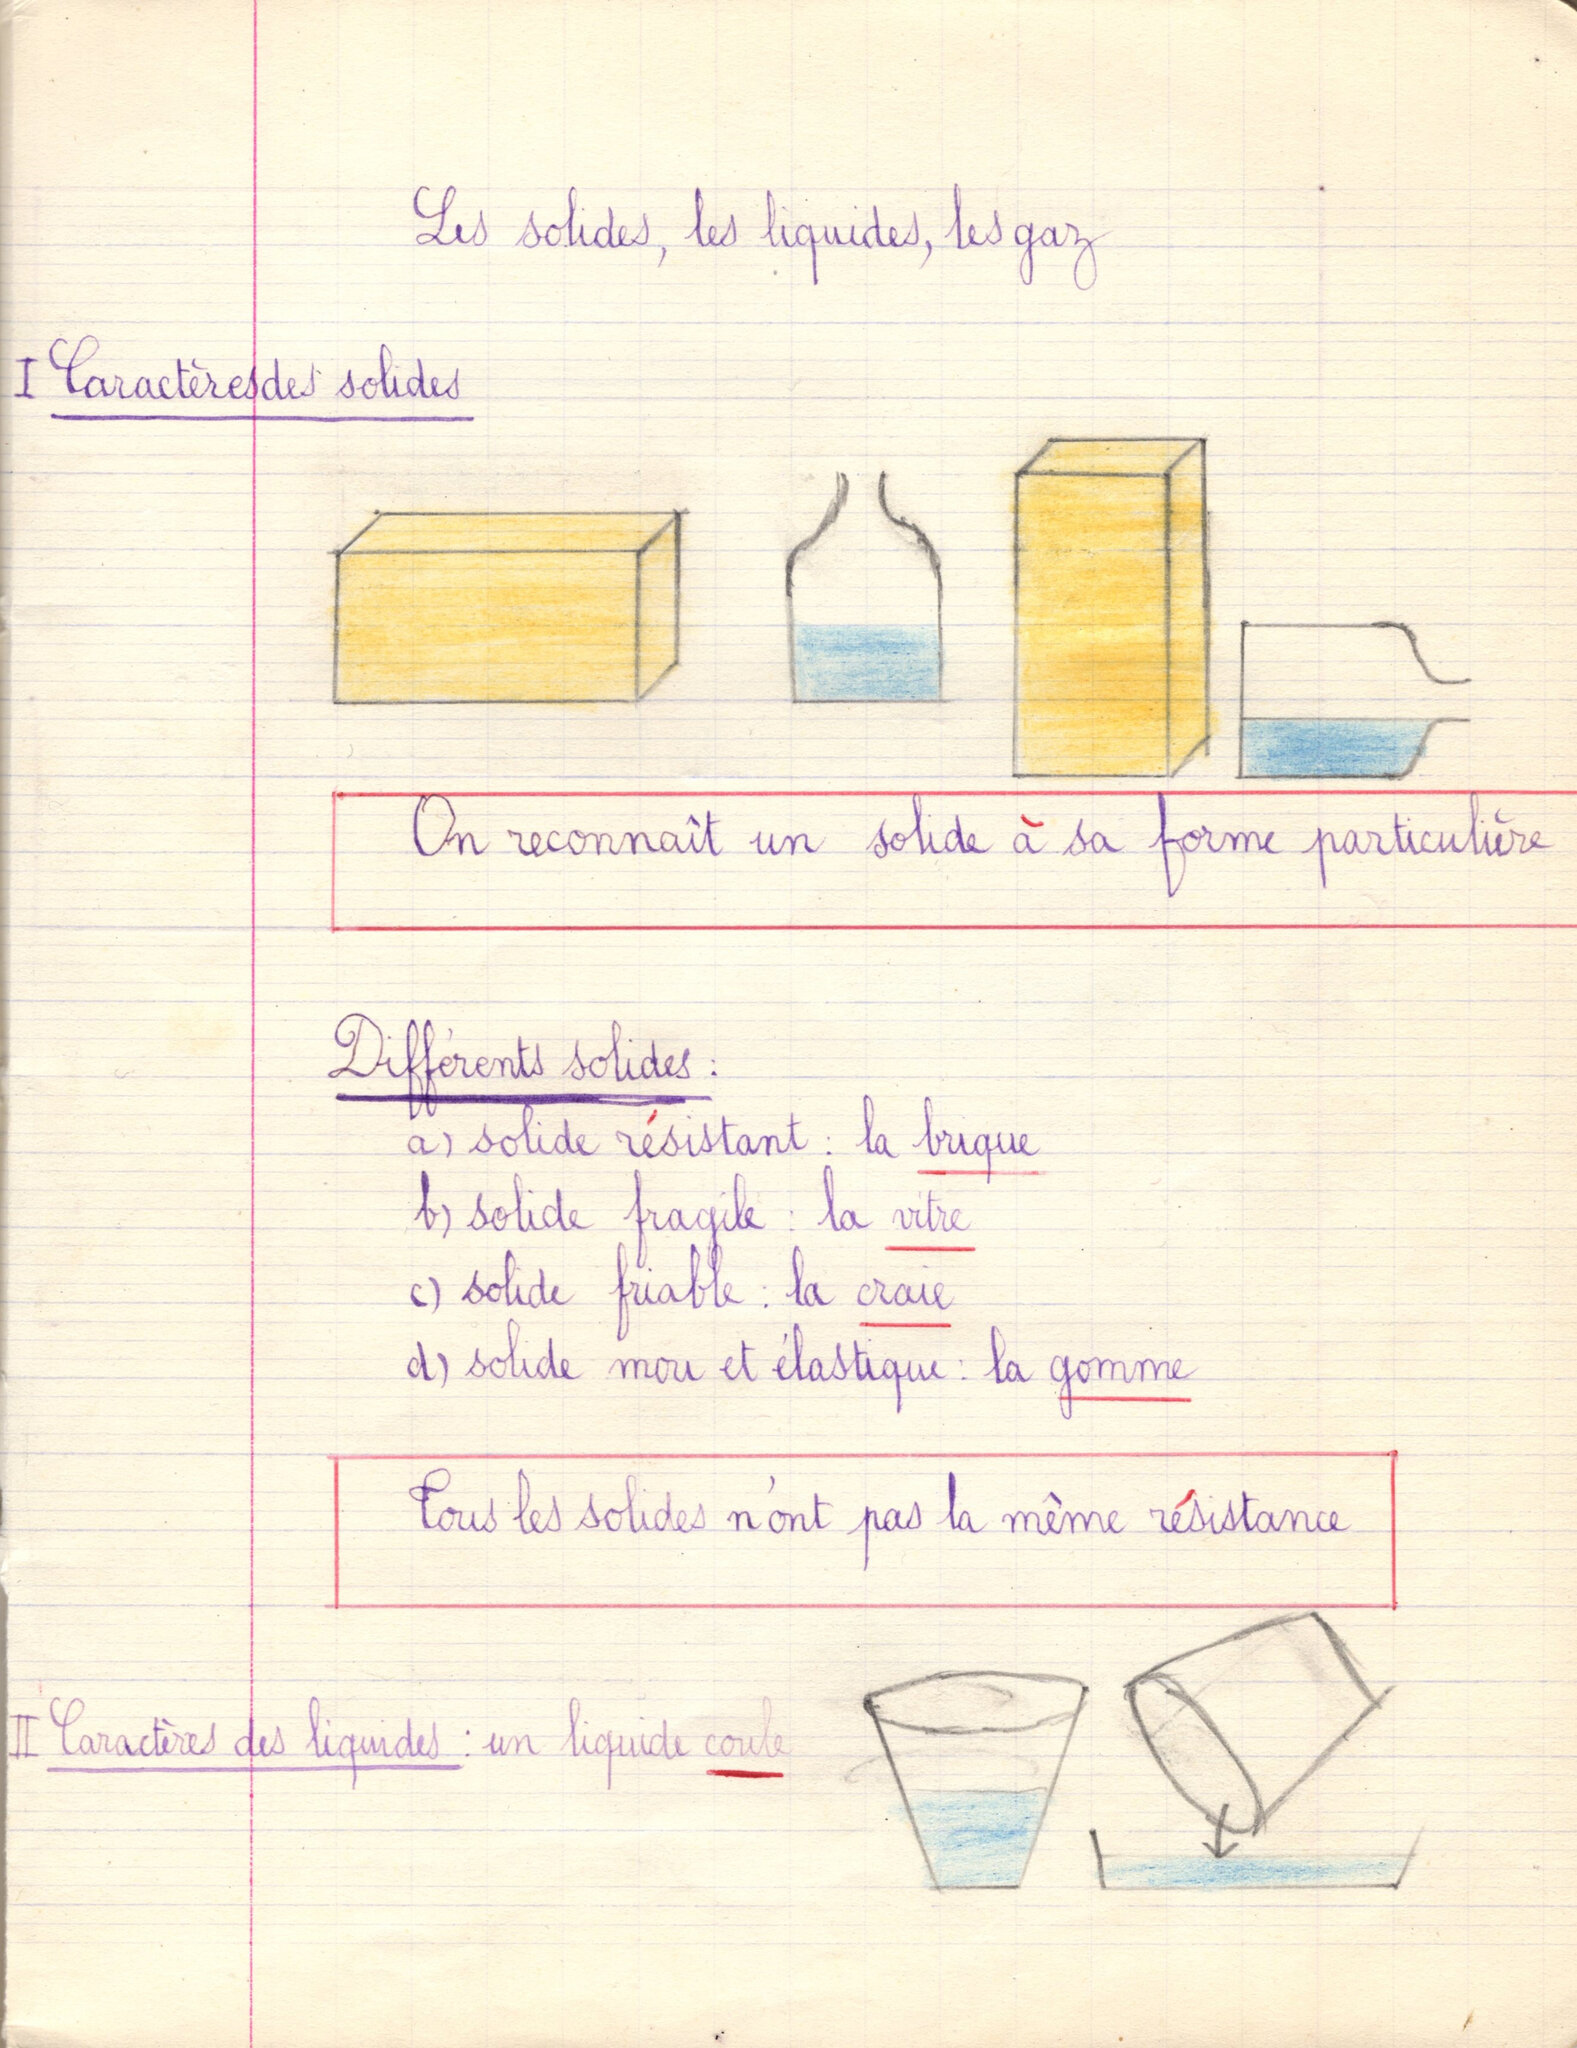 Les solides, les liquides, les gaz
I Caractères des solides
On reconnaît un solide à sa forme particulière
Différents solides :
a) solide résistant : la brique
b) solide fragile : la vitre
c) solide friable : la craie
d) solide mou et élastique : la gomme
Tous les solides n'ont pas la même résistance
II Caractères des liquides : un liquide coule